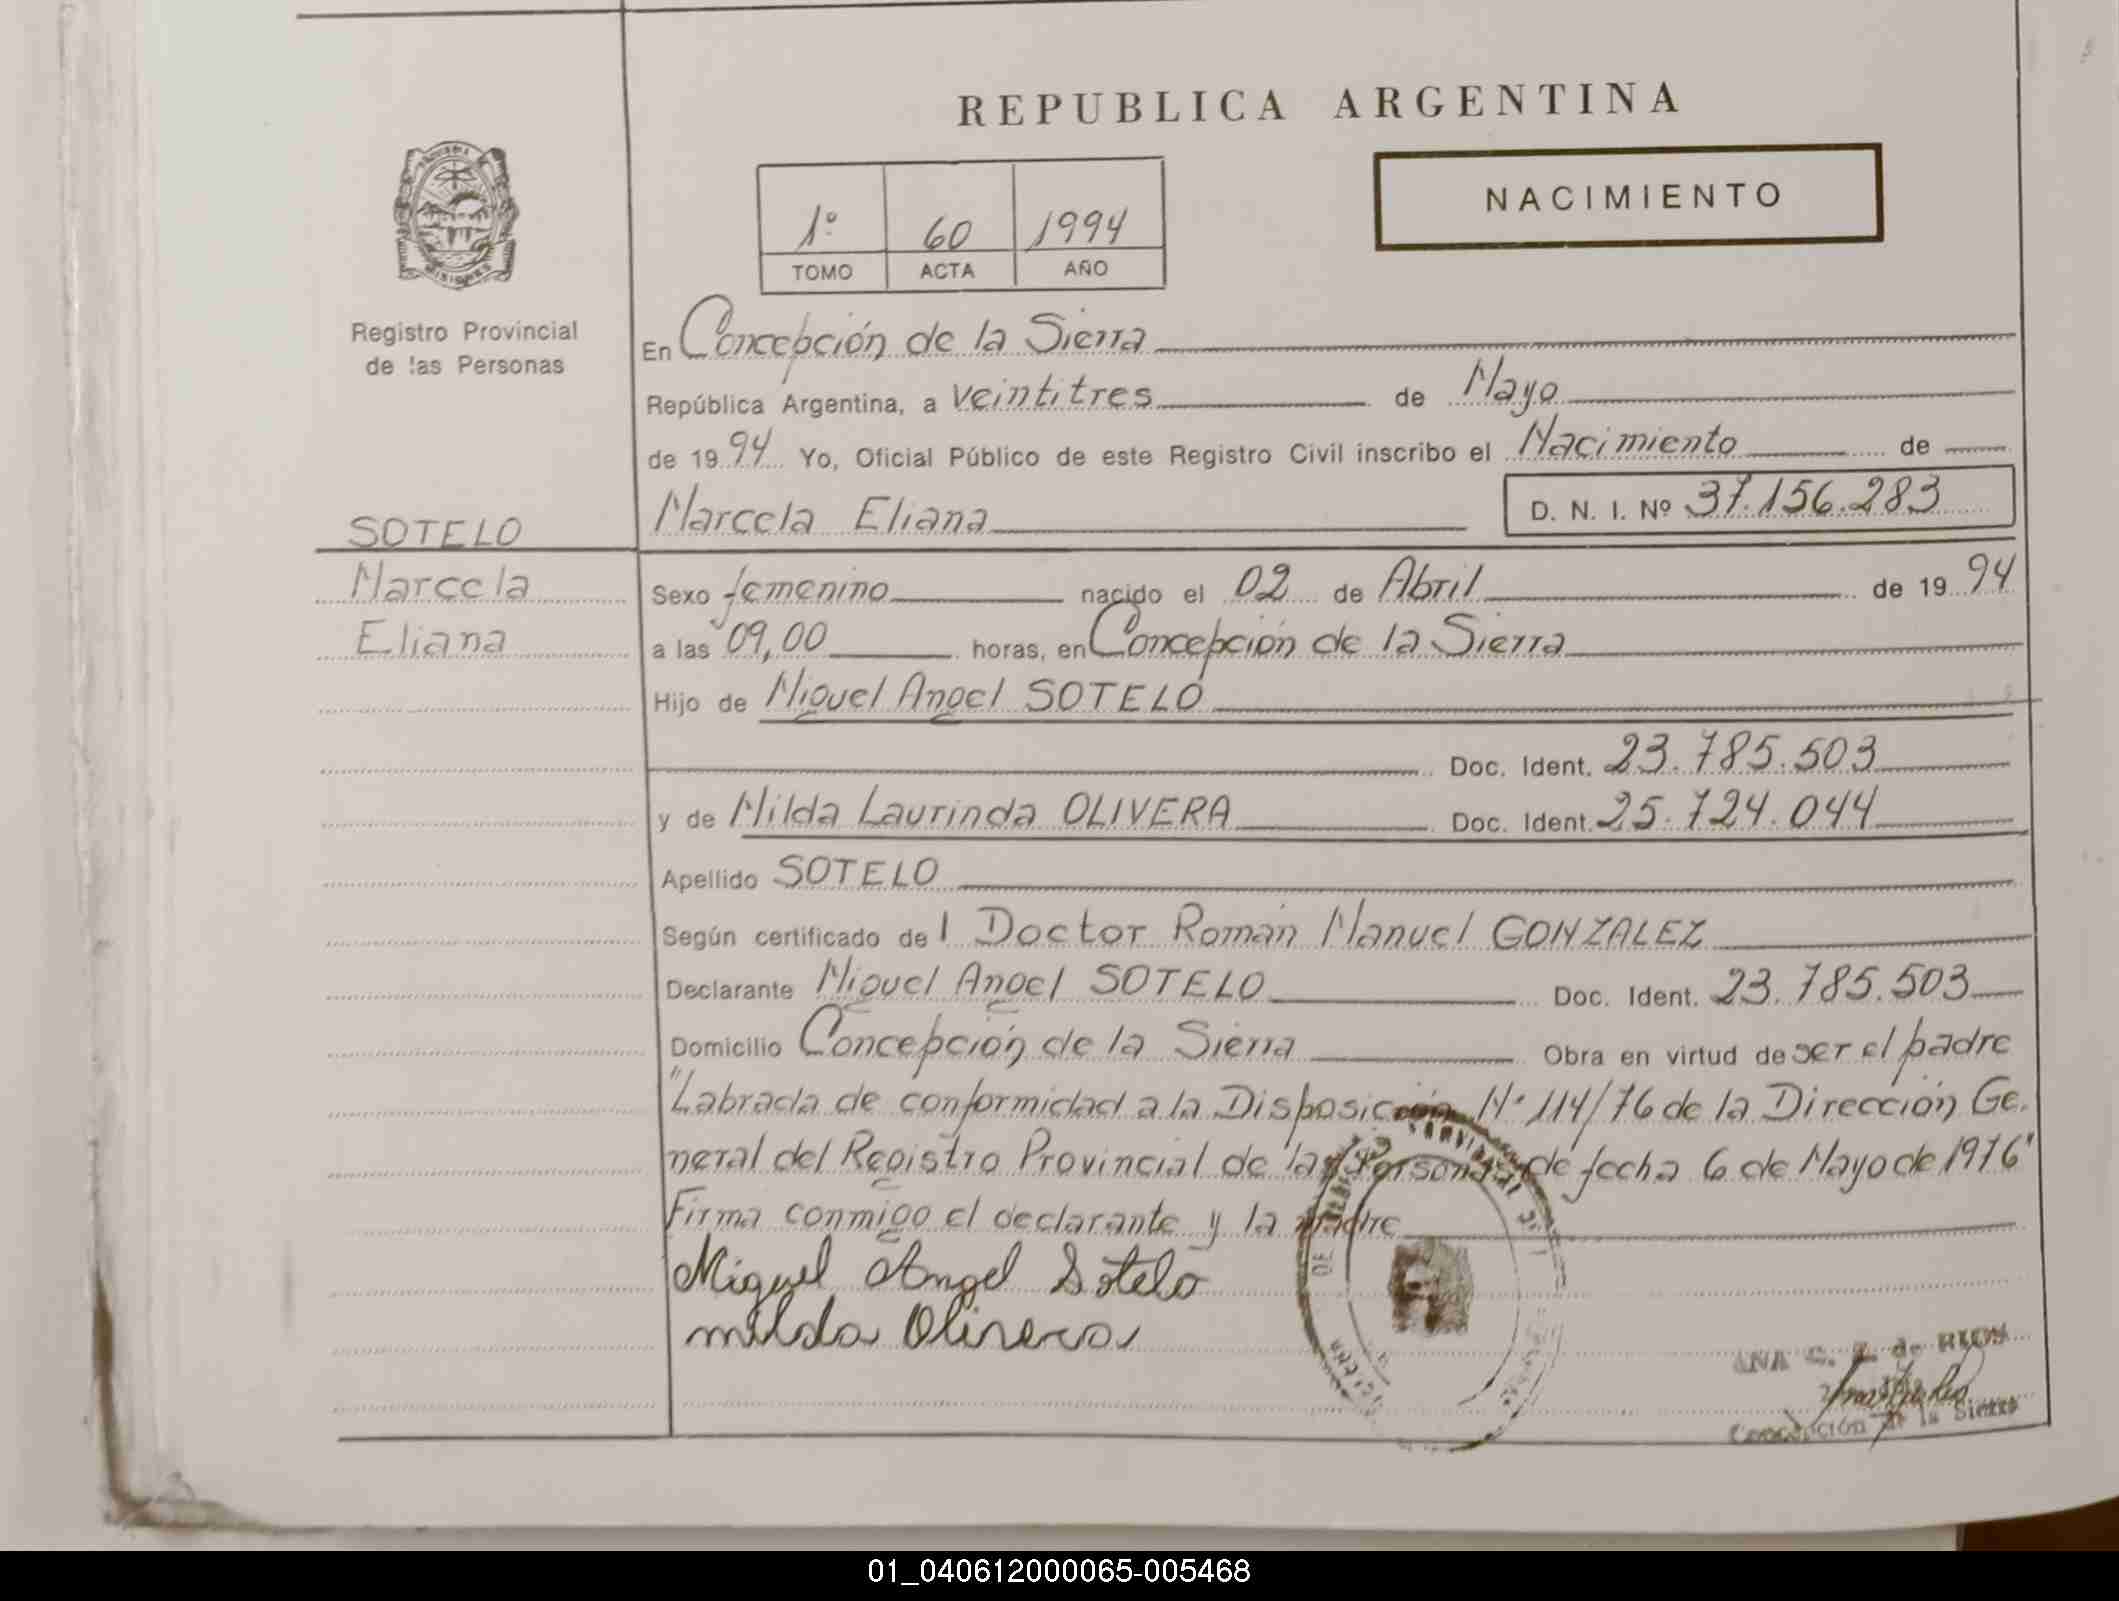 REPUBLICA ARGENTINA
NACIMIENTO
1º 60 1994
TOMO ACTA AÑO
Registro Provincial
de las Personas
En Concepción de la Sierra
República Argentina, a veintitres de Mayo
de 1994 Yo, Oficial Público de este Registro Civil inscribo el Nacimiento de
Marcela Eliana D. N. I. Nº 37.156.283
SOTELO
Marcela
Eliana
Sexo femenino nacido el 02 de Abril de 1994
a las 09,00 horas, en Concepción de la Sierra
Hijo de Miguel Angel SOTELO
Doc. Ident. 23.785.503
y de Milda Laurinda OLIVERA Doc. Ident. 25.724.044
Apellido SOTELO
Según certificado del Doctor Román Manuel GONZALEZ
Declarante Miguel Angel SOTELO Doc. Ident. 23.785.503
Domicilio Concepción de la Sierra Obra en virtud de ser el padre
"Labrada de conformidad a la Disposición Nº 114/76 de la Dirección Ge.
neral del Registro Provincial de las Personas de fecha 6 de Mayo de 1976"
Firma conmigo el declarante y la madre
Miguel Angel Sotelo
milda Olivera
ANA de RIOS
Concepción de la Sierra
01_040612000065-005468